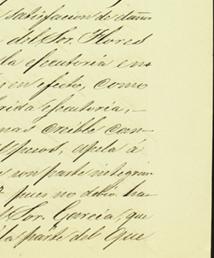 satisfaccion de daños
del Sor. Flores
la ejecutoria en
en efecto, como
rida ejecutoria,
mas creible can
pesos, apela á
son parte integran
pues no debia ha
Sor. Garcia, que
la parte del que